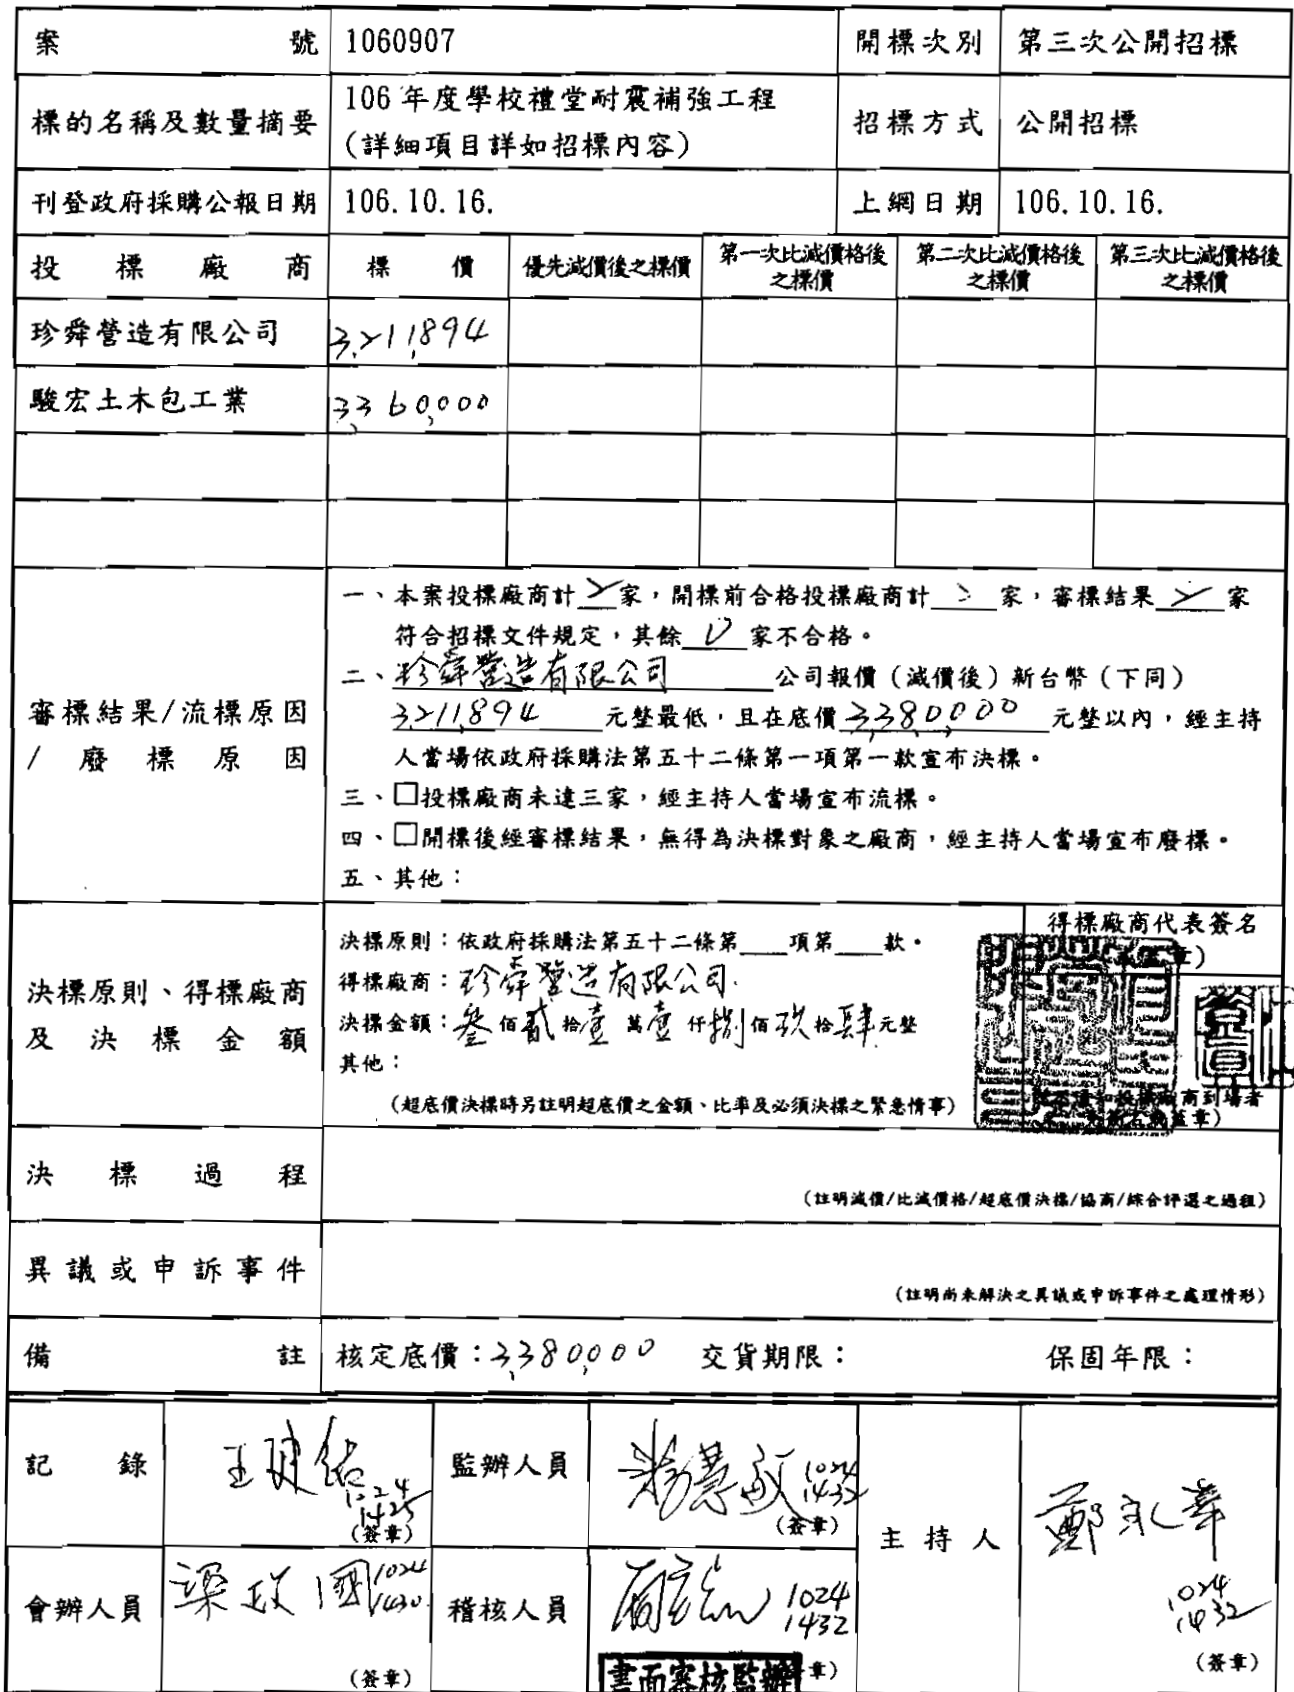 案號 1060907 開標次別 第三次公開招標
標的名稱及數量摘要 106年度學校禮堂耐震補強工程
(詳細項目詳如招標內容) 招標方式 公開招標
刊登政府採購公報日期 106.10.16. 上網日期 106.10.16.
投標廠商 標價 優先減價後之標價 第一次比減價格後之標價 第二次比減價格後之標價 第三次比減價格後之標價
珍舜營造有限公司 3,211,894
駿宏土木包工業 3,360,000
審標結果/流標原因
/廢標原因
一、本案投標廠商計2家，開標前合格投標廠商計2家，審標結果2家
符合招標文件規定，其餘0家不合格。
二、珍舜營造有限公司公司報價（減價後）新台幣（下同）
3,211,894元整最低，且在底價3,380,000元整以內，經主持
人當場依政府採購法第五十二條第一項第一款宣布決標。
三、□投標廠商未達三家，經主持人當場宣布流標。
四、□開標後經審標結果，無得為決標對象之廠商，經主持人當場宣布廢標。
五、其他：
決標原則、得標廠商
及決標金額
決標原則：依政府採購法第五十二條第___項第___款。
得標廠商：珍舜營造有限公司
決標金額：叁佰貳拾壹萬壹仟捌佰玖拾肆元整
其他：
(超底價決標時另註明超底價之金額、比率及必須決標之緊急情事)
得標廠商代表簽名
章)
商到場者
蓋章)
決標過程
(註明減價/比減價格/超底價決標/協商/綜合評選之過程)
異議或申訴事件
(註明尚未解決之異議或申訴事件之處理情形)
備註 核定底價：3,380,000 交貨期限： 保固年限：
記錄 1024
1425
(簽章)
監辦人員 1024
1432
(簽章)
主持人 鄭永華
1024
1432
(簽章)
會辦人員 梁玫國 1024
1430
(簽章)
稽核人員 1024
1432
章)
書面審核監辦